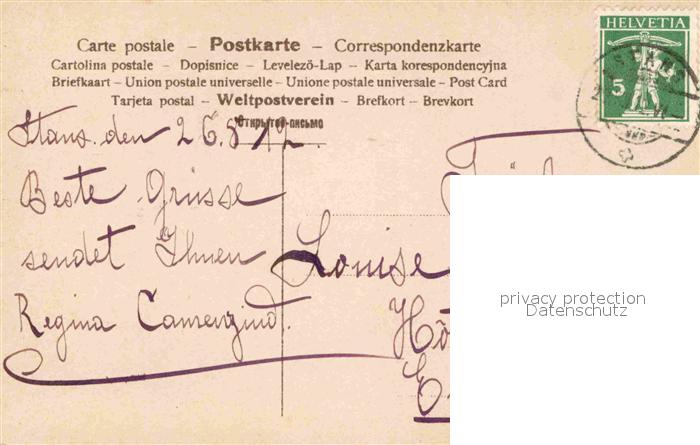 Carte postale – Postkarte – Correspondenzkarte
Cartolina postale – Dopisnice – Levelező-Lap – Karta korespondencyjna
Briefkaart – Union postale universelle – Unione postale universale – Post Card
Tarjeta postal – Weltpostverein – Brefkort – Brevkort
Открытое письмо
HELVETIA
5
Stans. den 26.8 12.
Beste Grüsse
sendet Ihnen
Regina Camenzind.
Louise
privacy protection
Datenschutz